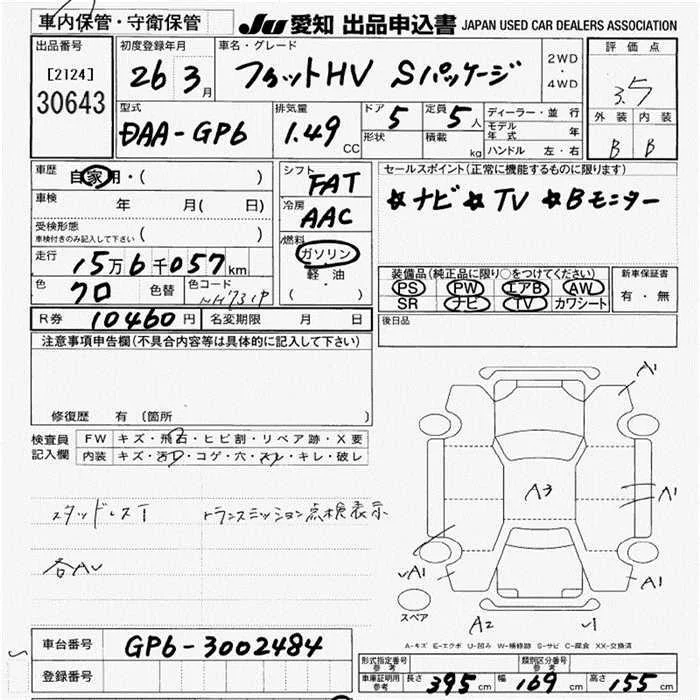 車内保管・守衛保管 JU 愛知 出品申込書 JAPAN USED CAR DEALERS ASSOCIATION
出品番号 初度登録年月 車名・グレード 評価点
[2124] 26 3月 フィットHV Sパッケージ 2WD・4WD 3.5
30643
型式 排気量 ドア 5 定員 5人 ディーラー・並行 外装 内装
DAA-GP6 1.49 CC 形状 積載 kg モデル年式 年
ハンドル 左・右 B B
車歴 自家用・( ) シフト FAT セールスポイント(正常に機能するものに限ります)
車検 年 月( 日) 冷房 AAC ☆ナビ ☆TV ☆Bモニター
受検形態 車検付きのみ記入して下さい ( ) 燃料 ガソリン
走行 15万6千057km 軽・油 装備品(純正品に限り○をつけてください) 新車保証書
色 クロ 色替 色コード NH731P ( ) PS PW エアB AW 有・無
SR ナビ TV カワシート
R券 10460円 名変期限 月 日 後日品
注意事項申告欄(不具合内容等は具体的に記入して下さい)
修復歴 有 (箇所 )
検査員記入欄 FW キズ・飛石・ヒビ割・リペア跡・X要
内装 キズ・汚れ・コゲ・穴・スレ・キレ・破レ
スタッドレスT トランスミッション点検表示
各AU
A1
A3
A1
A1
A1
スペア
A2
A-キズ E-エクボ U-凹み W-補修跡 S-サビ C-腐食 XX-交換済
車台番号 GP6-3002484
登録番号
形式指定番号 参考 類別区分番号 参考
車庫証明用 参考 長さ 395cm 幅 169cm 高さ 155cm